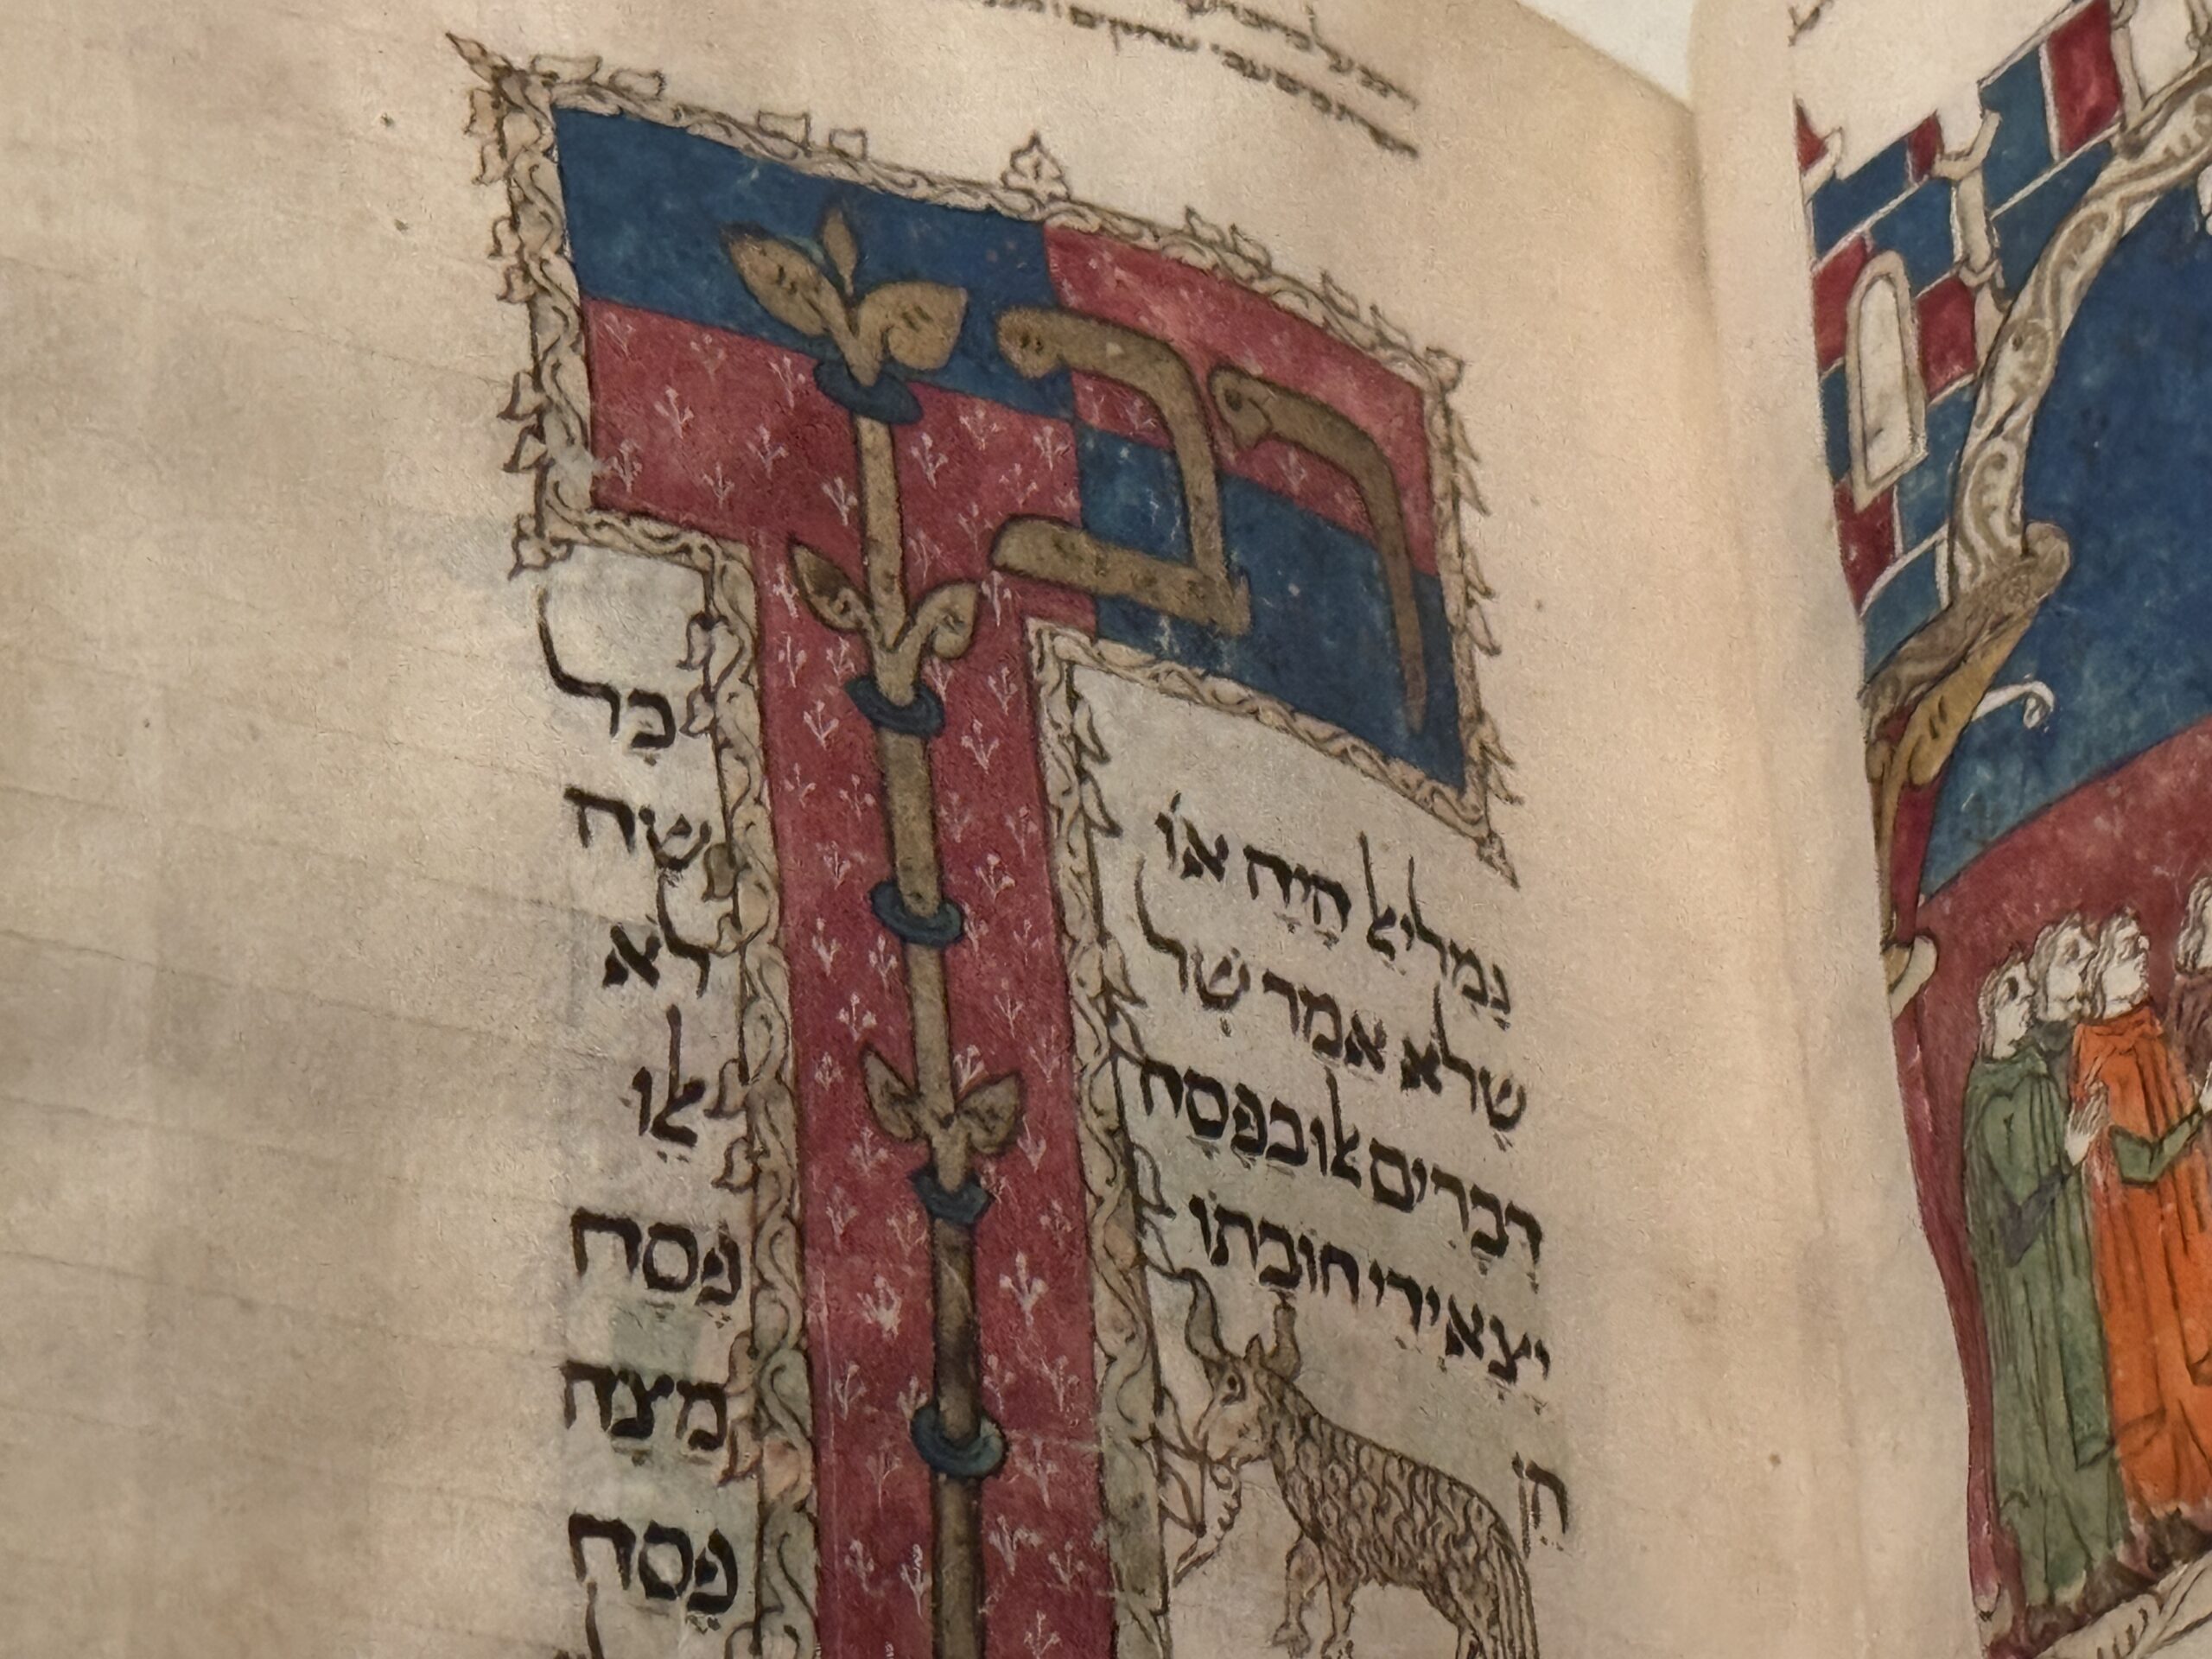 רבן
גמליאל היה או כל
שלא אמר של שה
דברים אלו בפסח לא
יצא ידי חובתו אלו
הן פסח
מצה
פסח